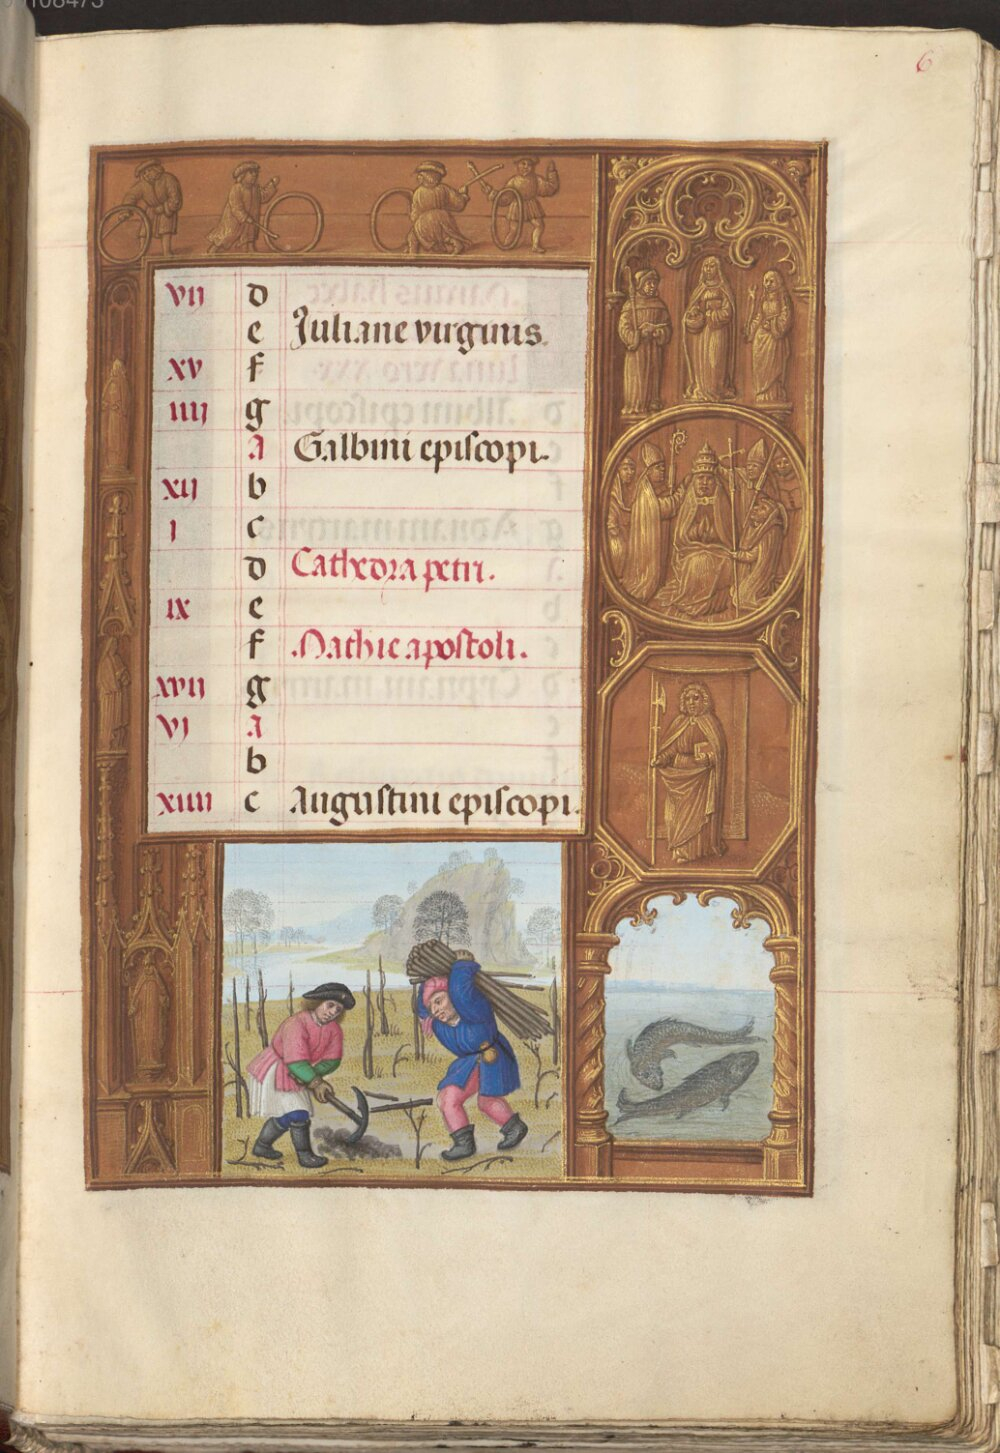 6
vij d
e Juliane virginis.
xv f
iiij g
a Galbini episcopi.
xij b
i c
d Cathedra petri.
ix e
f Mathie apostoli.
xvij g
vj a
b
xiiij c Augustini episcopi.